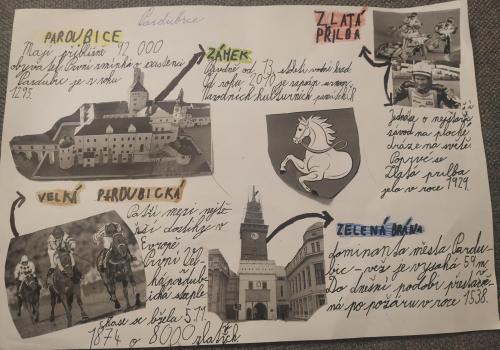 Pardubice
PARDUBICE
Mají přibližně 92 000
obyvatel. První zmínka o
Pardubic je z roku
1295.
ZÁMEK
Původně od 13. století vodní hrad
od roku 2010 je zapsán
národních kulturních památek
ZLATÁ
PŘILBA
Jedná se o nejstarší
závod na ploché
dráze na světě.
Poprvé se
Zlatá přilba
jela v roce 1929.
VELKÁ PARDUBICKÁ
Patří mezi nejtě
žší dostihy v
Evropě
První Vel
ká pardub
ická steeple
chase se běžela 5.11.
1874 o 8000 zlatých
ZELENÁ BRÁNA
dominanta města Pardu
bic - věž je vysoká 59 m.
Do dnešní podoby přestavě
ná po požáru v roce 1538.